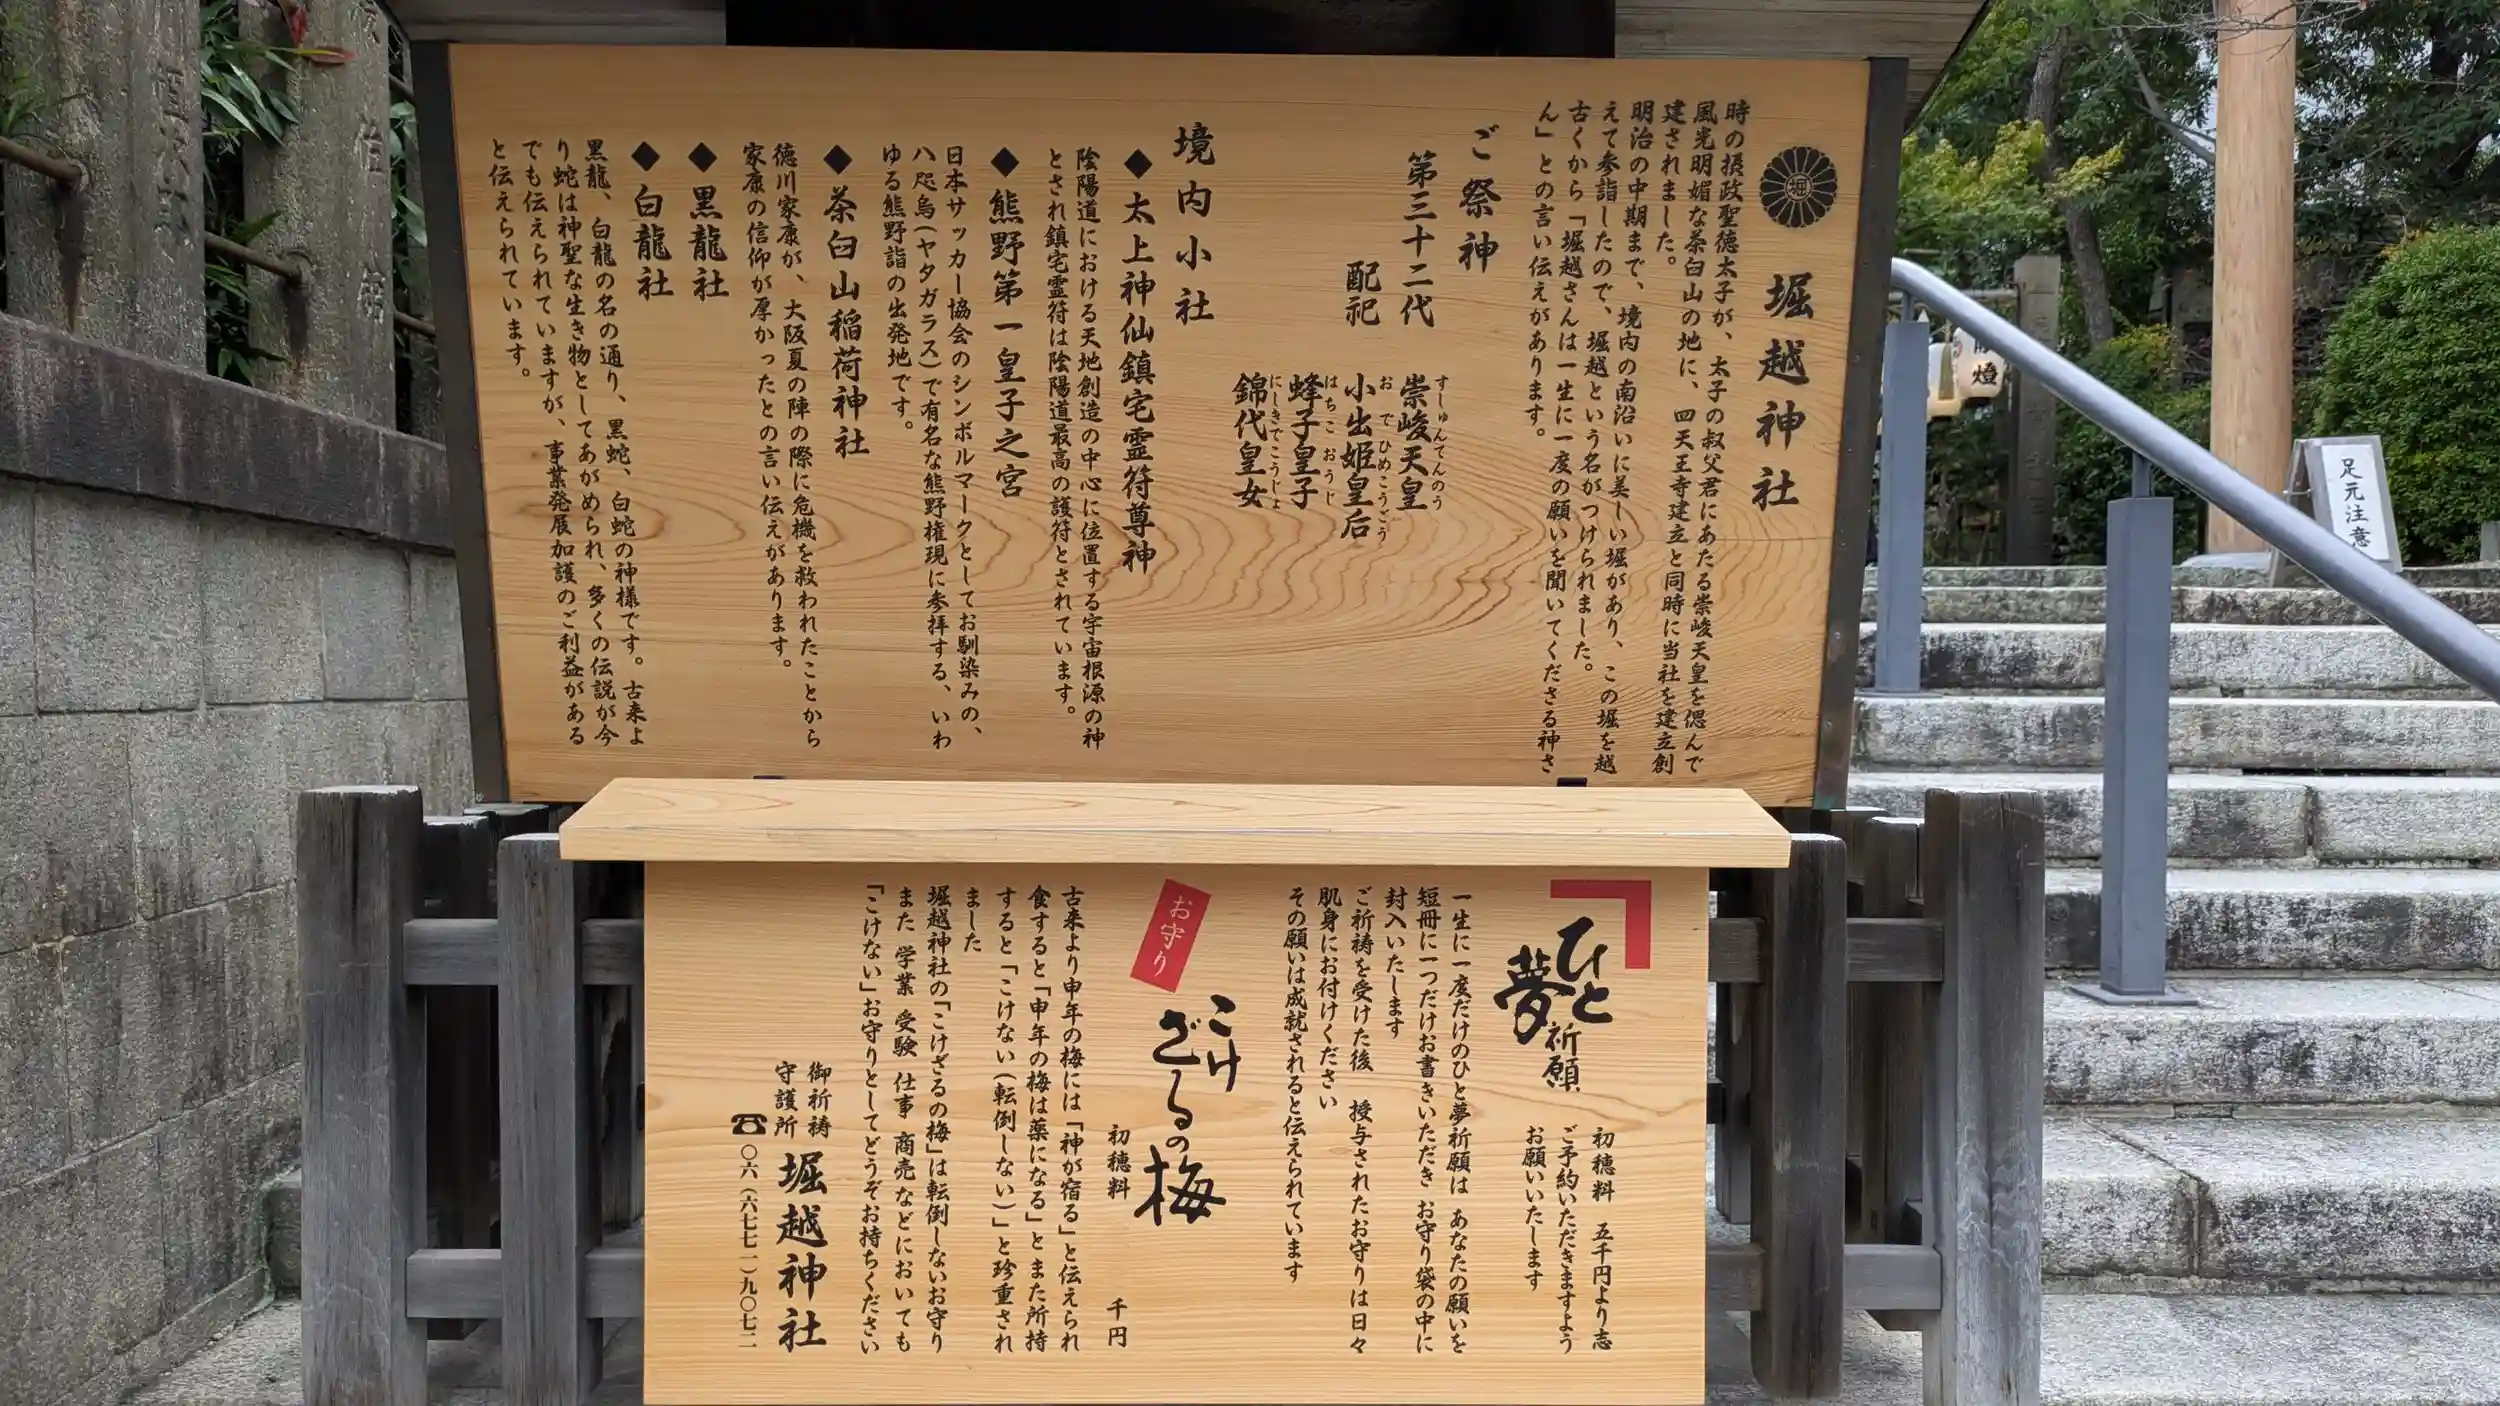 堀
堀越神社
時の摂政聖徳太子が、太子の叔父君にあたる崇峻天皇を偲んで
風光明媚な茶臼山の地に、四天王寺建立と同時に当社を建立創
建されました。
明治の中期まで、境内の南沿いに美しい堀があり、この堀を越
えて参詣したので、堀越という名がつけられました。
古くから「堀越さんは一生に一度の願いを聞いてくださる神さ
ん」との言い伝えがあります。
ご祭神
第三十二代 崇峻天皇
すしゅんてんのう
配祀 小出姫皇后
おでひめこうごう
蜂子皇子
はちこおうじ
錦代皇女
にしきでこうじょ
境内小社
◆太上神仙鎮宅霊符尊神
陰陽道における天地創造の中心に位置する宇宙根源の神
とされ鎮宅霊符は陰陽道最高の護符とされています。
◆熊野第一皇子之宮
日本サッカー協会のシンボルマークとしてお馴染みの、
八咫烏(ヤタガラス)で有名な熊野権現に参拝する、いわ
ゆる熊野詣の出発地です。
◆茶臼山稲荷神社
徳川家康が、大阪夏の陣の際に危機を救われたことから
家康の信仰が厚かったとの言い伝えがあります。
◆黒龍社
◆白龍社
黒龍、白龍の名の通り、黒蛇、白蛇の神様です。古来よ
り蛇は神聖な生き物としてあがめられ、多くの伝説が今
でも伝えられていますが、事業発展加護のご利益がある
と伝えられています。
ひと
夢
祈願
初穂料 五千円より志
ご予約いただきますよう
お願いいたします
一生に一度だけのひと夢祈願は あなたの願いを
短冊に一つだけお書きいただき お守り袋の中に
封入いたします
ご祈祷を受けた後 授与されたお守りは日々
肌身にお付けください
その願いは成就されると伝えられています
お守り
こけ
ざるの梅
初穂料 千円
古来より申年の梅には「神が宿る」と伝えられ
食すると「申年の梅は薬になる」とまた所持
すると「こけない(転倒しない)」と珍重され
ました
堀越神社の「こけざるの梅」は転倒しないお守り
また 学業 受験 仕事 商売などにおいても
「こけない」お守りとしてどうぞお持ちください
御祈祷
守護所
堀越神社
☎〇六(六七七一)九〇七二
足元注意
燈